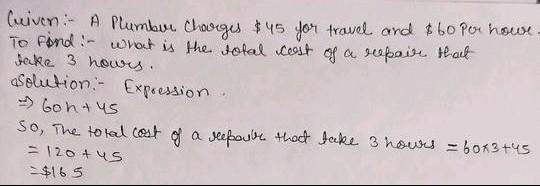 Given:- A Plumber Charges $45 for travel and $60 Per hour.
To Find:- what is the total cost of a repair that
take 3 hours.
Solution:- Expression.
⇒ 60h+45
So, The total cost of a repair that take 3 hours = 60x3+45
= 120+45
=$165